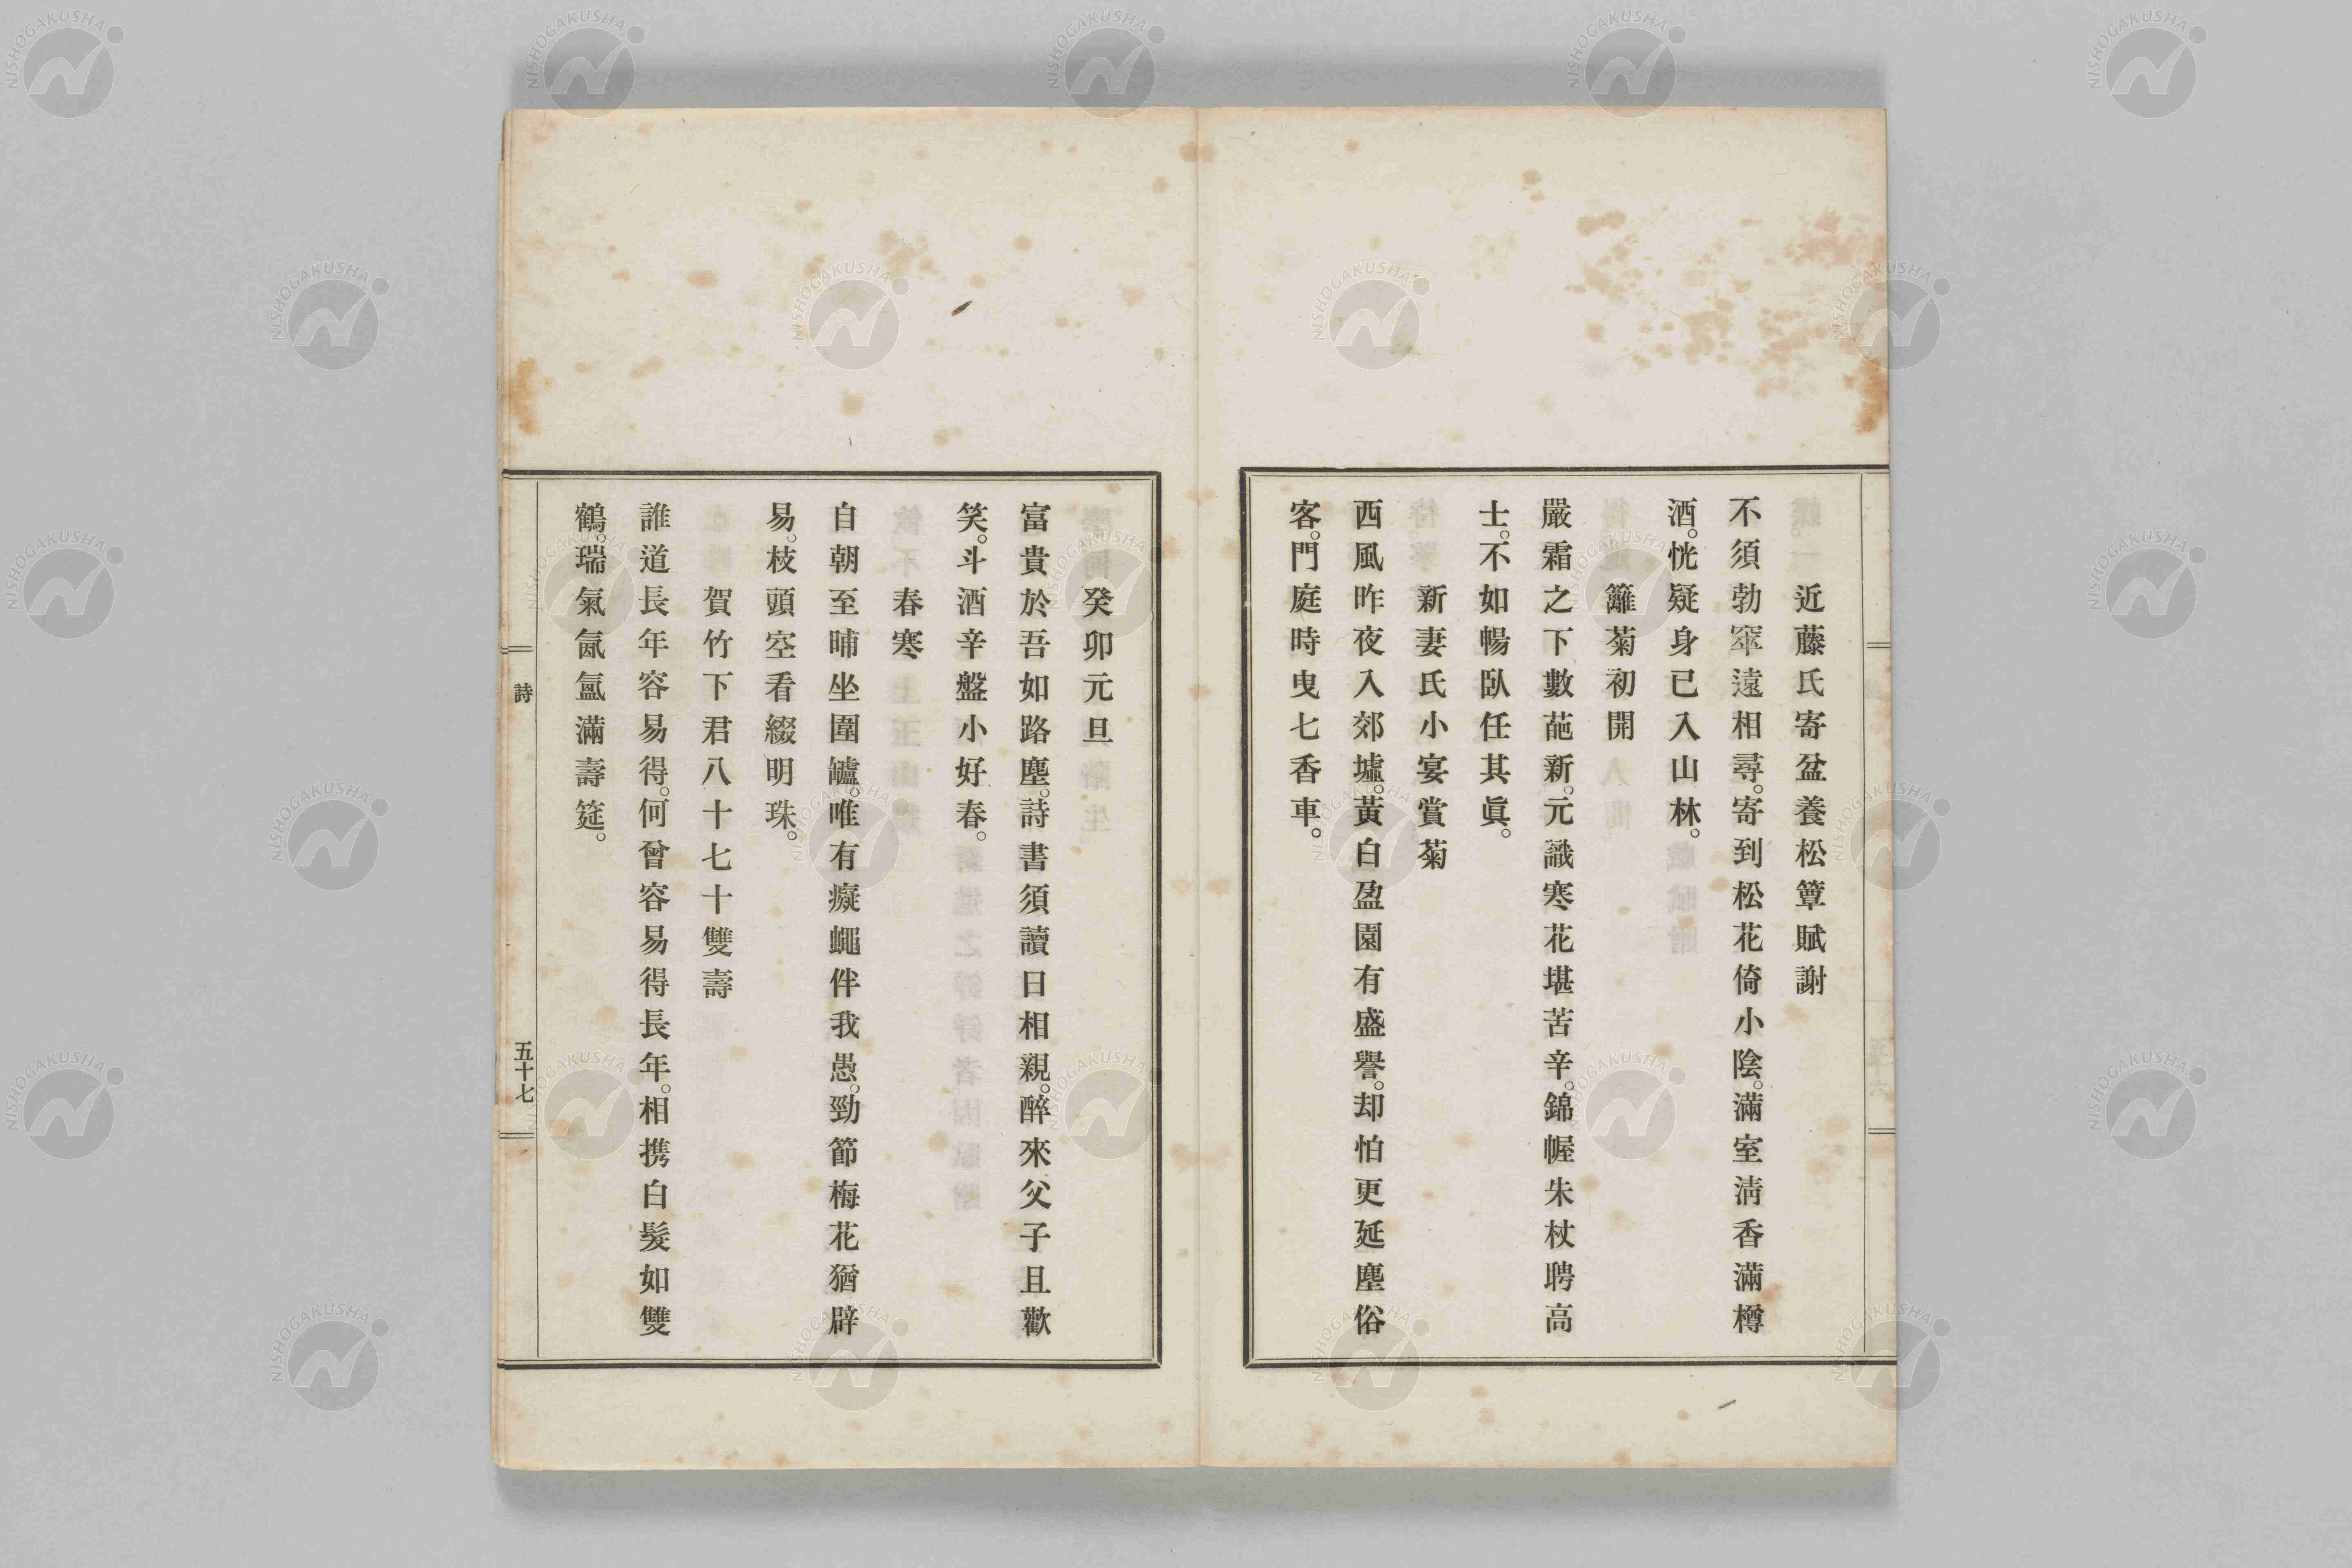 近藤氏寄盆養松簟賦謝
不須勃窣遠相尋。寄到松花倚小陰。滿室淸香滿樽
酒。恍疑身已入山林。
籬菊初開
嚴霜之下數葩新。元識寒花堪苦辛。錦幄朱杖聘高
士。不如暢臥任其眞。
新妻氏小宴賞菊
西風昨夜入郊墟。黃白盈園有盛譽。却怕更延塵俗
客。門庭時曳七香車。
癸卯元旦
富貴於吾如路塵。詩書須讀日相親。醉來父子且歡
笑。斗酒辛盤小好春。
春寒
自朝至晡坐圍罏。唯有癡蠅伴我愚。勁節梅花猶辟
易。枝頭空看綴明珠。
賀竹下君八十七十雙壽
誰道長年容易得。何曾容易得長年。相携白髮如雙
鶴。瑞氣氤氳滿壽筵。
詩
五十七
NISHOGAKUSHA